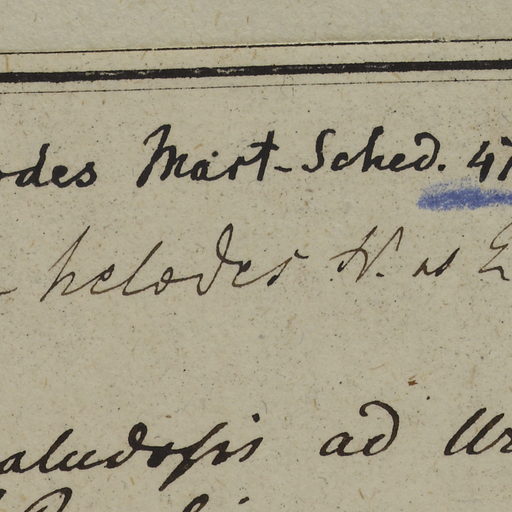 odes Mart-Sched. 47
helodes N. ab E
aludosis ad Ur